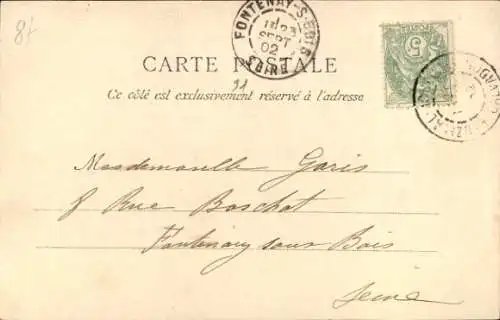 87
FONTENAY-S-BOIS
23
SEPT
02
SEINE
5
CARTE POSTALE
Ce côté est exclusivement réservé à l'adresse
Mademoiselle Garis
8 Rue Boschot
Fontenay sous Bois
Seine